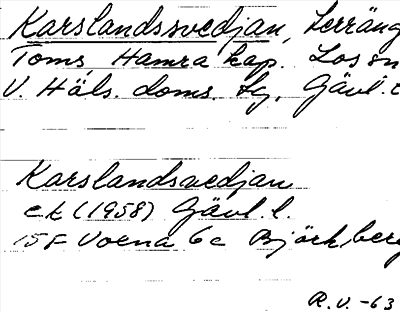 Karslandssvedjan, terräng
Toms, Hamra kap. Los sn
V. Häls. doms. tg, Gävl.
Karslandsvedjan
ek (1958) Gävl. l.
15F Voxna 6c Björkberg
R.V. -63